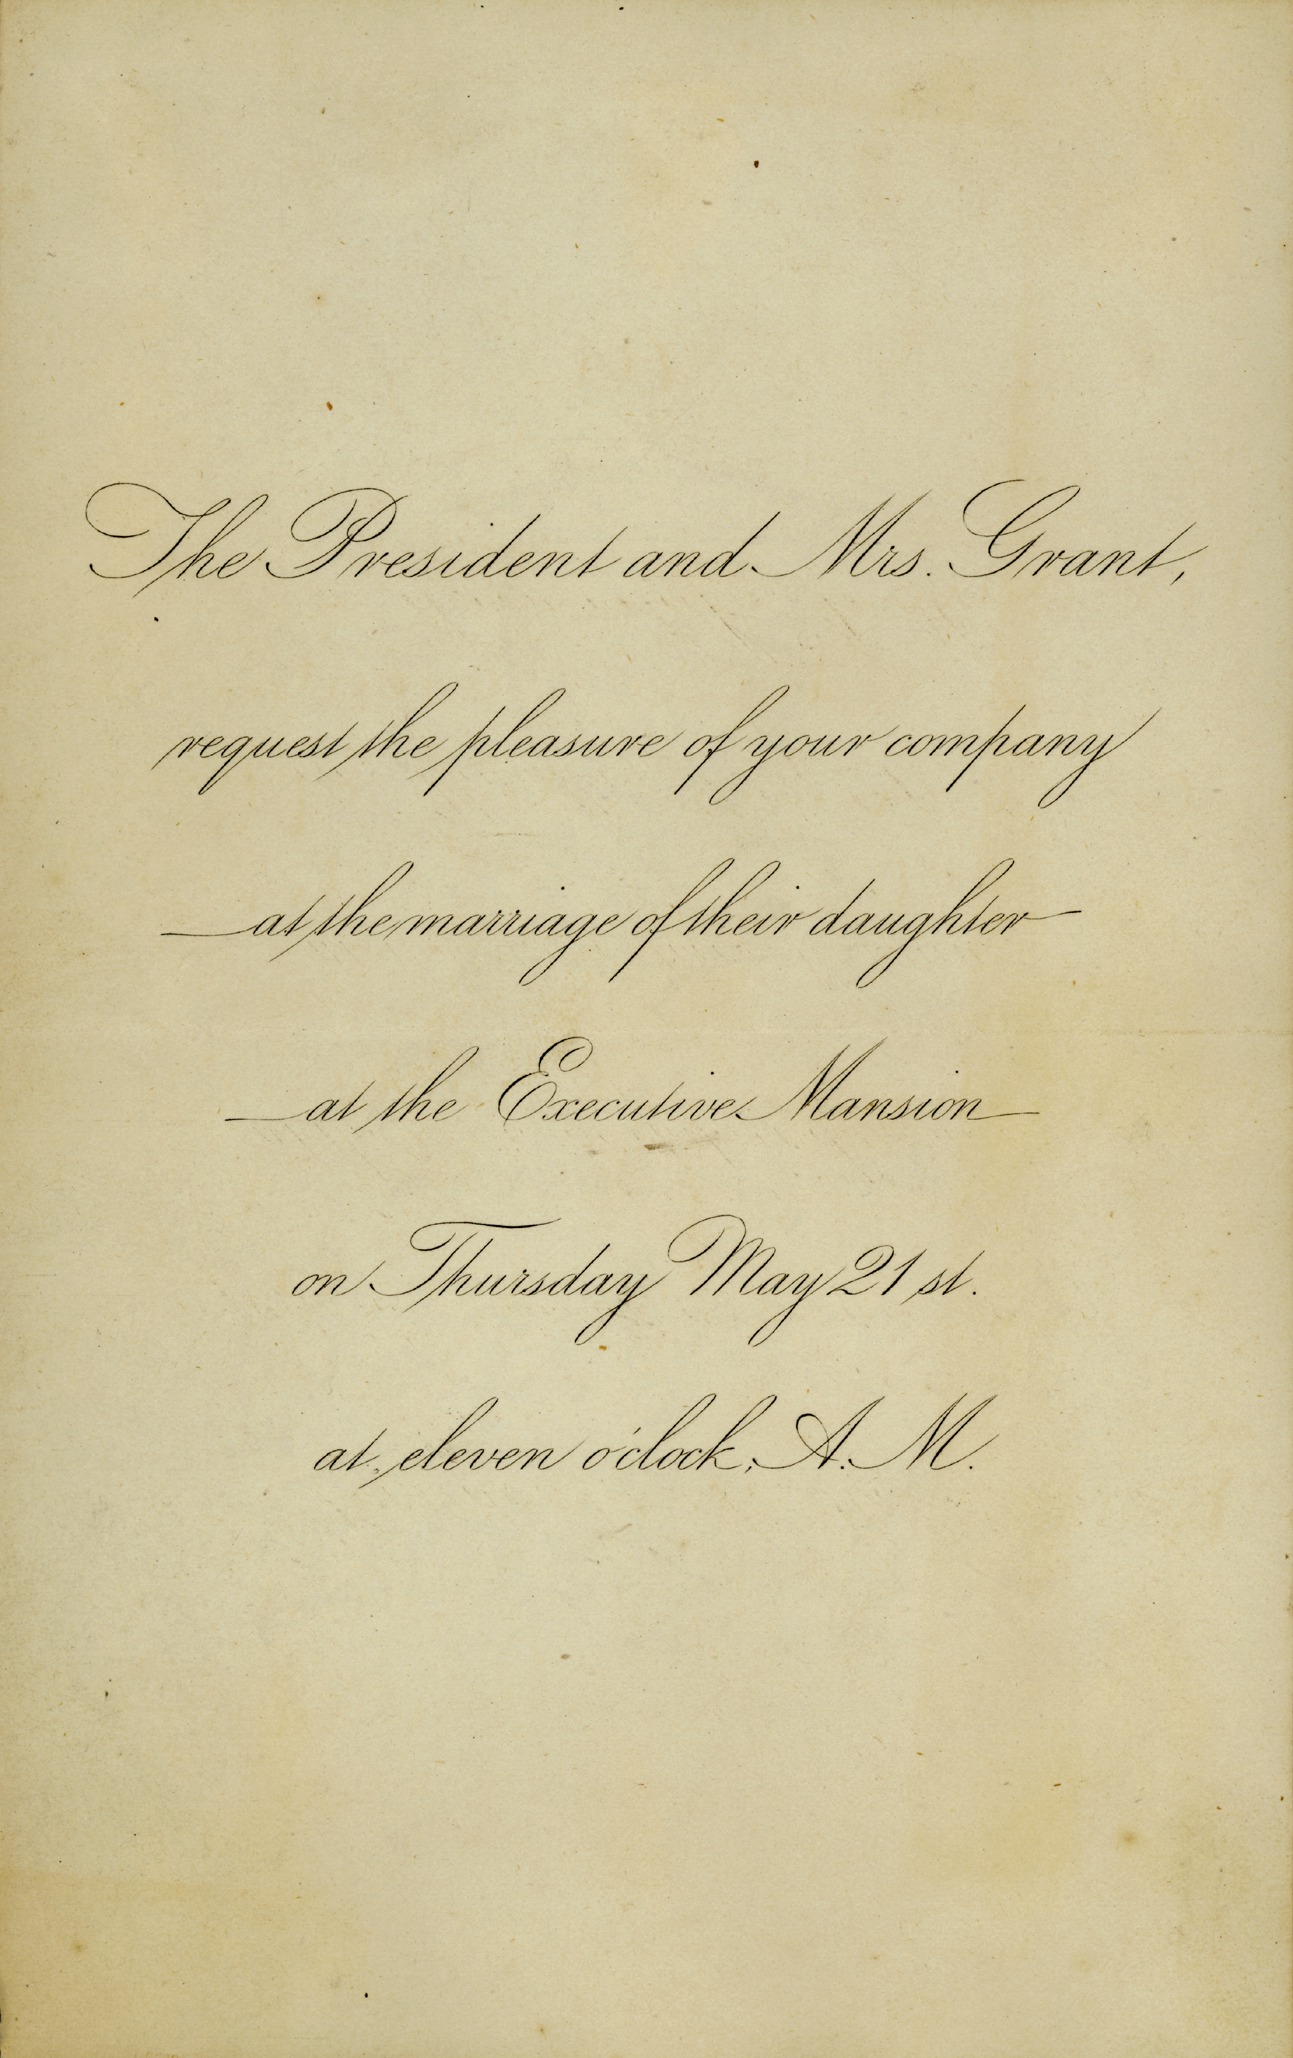 The President and Mrs. Grant,
request the pleasure of your company
at the marriage of their daughter
at the Executive Mansion
on Thursday May 21st.
at eleven o'clock, A.M.